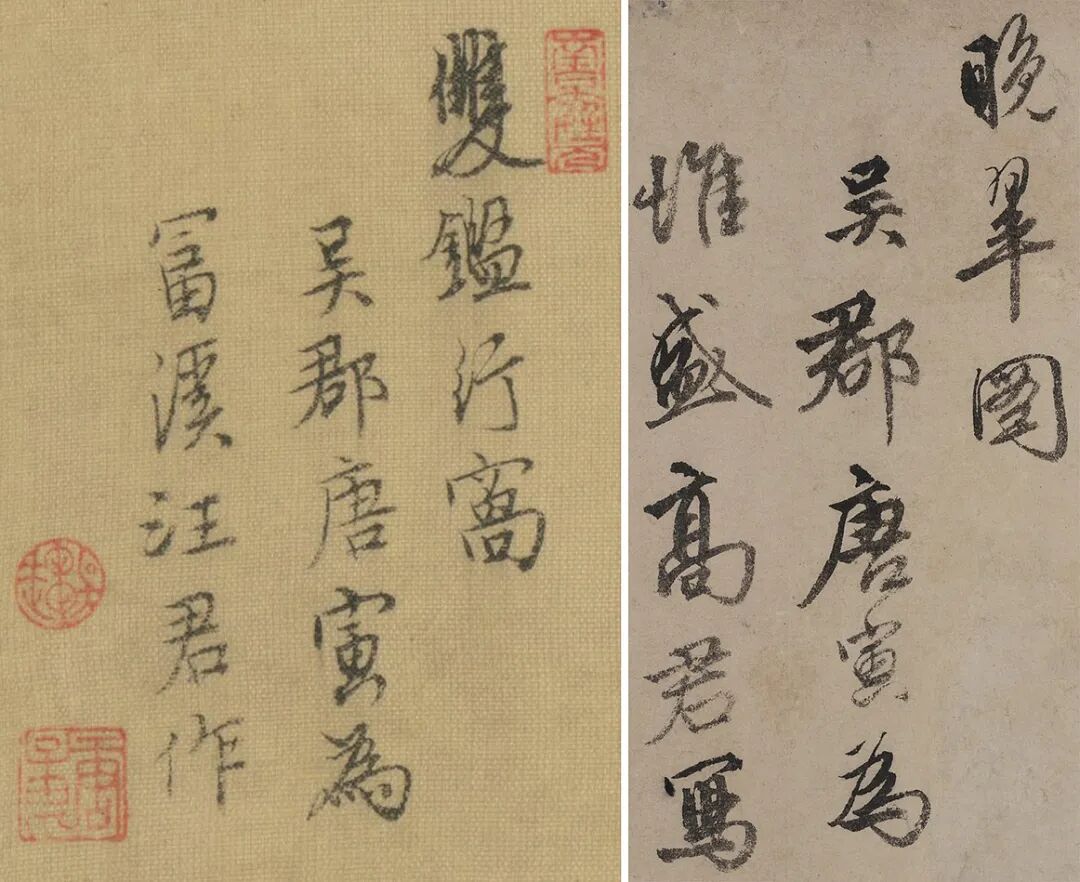 雙鑑行窩
吳郡唐寅為
富溪汪君作
晚翠圖
吳郡唐寅為
惟盛高君寫